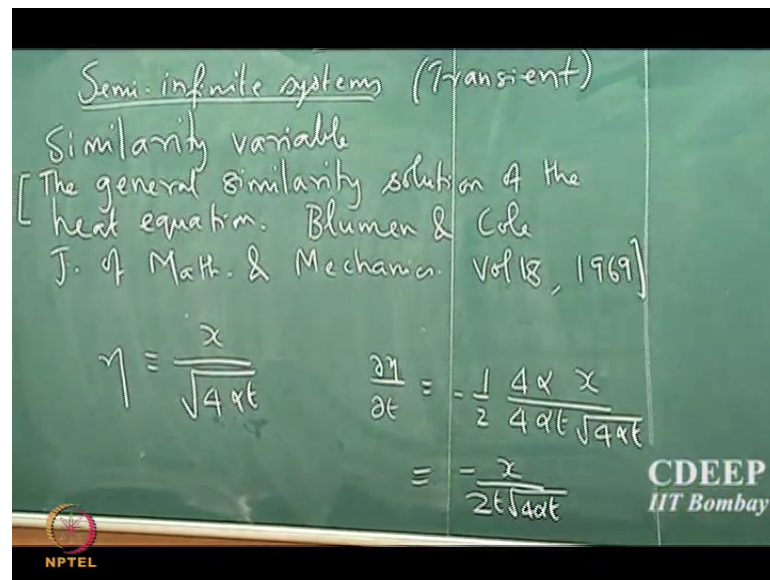 Semi-infinite systems (Transient)
Similarity variable
[The general similarity solution of the
heat equation. Blumen & Cole
J. of Math. & Mechanics. Vol 18, 1969]
η = x / √4αt    ∂η/∂t = -1/2 4α x / 4αt √4αt
= -x / 2t√4αt
CDEEP
IIT Bombay
NPTEL